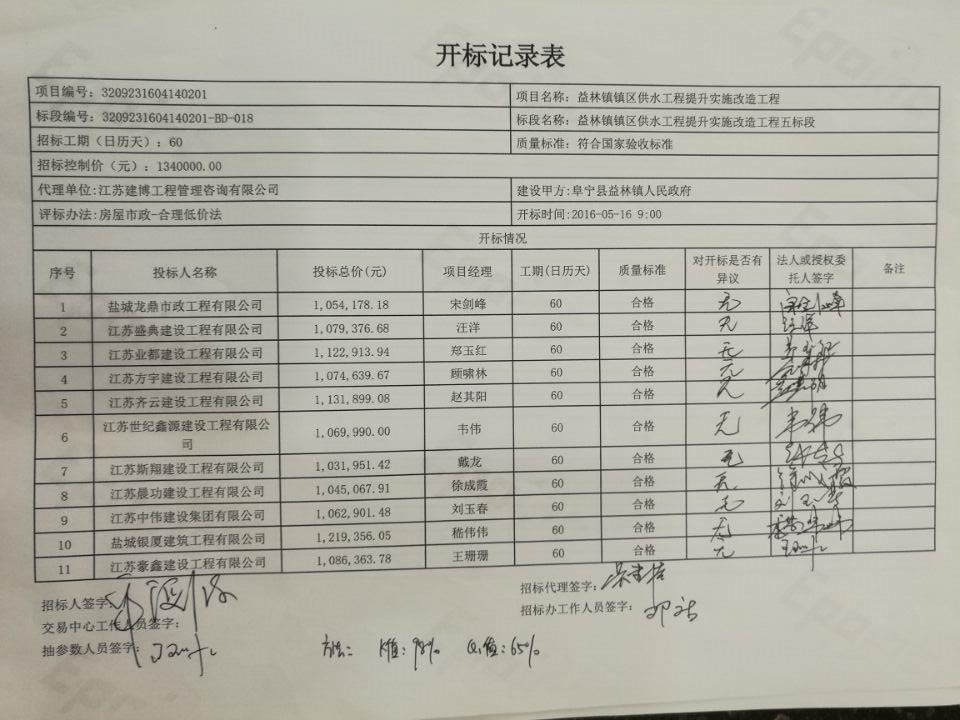 开标记录表
项目编号：3209231604140201 项目名称：益林镇镇区供水工程提升实施改造工程
标段编号：3209231604140201-BD-018 标段名称：益林镇镇区供水工程提升实施改造工程五标段
招标工期（日历天）：60 质量标准：符合国家验收标准
招标控制价（元）：1340000.00
代理单位:江苏建博工程管理咨询有限公司 建设甲方:阜宁县益林镇人民政府
评标办法:房屋市政-合理低价法 开标时间:2016-05-16 9:00
开标情况
序号 投标人名称 投标总价(元) 项目经理 工期(日历天) 质量标准 对开标是否有异议 法人或授权委托人签字 备注
1 盐城龙鼎市政工程有限公司 1,054,178.18 宋剑峰 60 合格 无
2 江苏盛典建设工程有限公司 1,079,376.68 汪洋 60 合格 无 汪洋
3 江苏业都建设工程有限公司 1,122,913.94 郑玉红 60 合格 无
4 江苏方宇建设工程有限公司 1,074,639.67 顾啸林 60 合格 无
5 江苏齐云建设工程有限公司 1,131,899.08 赵其阳 60 合格 无
6 江苏世纪鑫源建设工程有限公司 1,069,990.00 韦伟 60 合格 无 韦伟
7 江苏斯翔建设工程有限公司 1,031,951.42 戴龙 60 合格 无
8 江苏晨功建设工程有限公司 1,045,067.91 徐成霞 60 合格 无
9 江苏中伟建设集团有限公司 1,062,901.48 刘玉春 60 合格 无 刘玉春
10 盐城银厦建筑工程有限公司 1,219,356.05 嵇伟伟 60 合格 无
11 江苏豪鑫建设工程有限公司 1,086,363.78 王珊珊 60 合格 无
招标人签字: 招标代理签字:
交易中心工作人员签字: 招标办工作人员签字:
抽参数人员签字:
方法二 K值:98% Q1值:65%